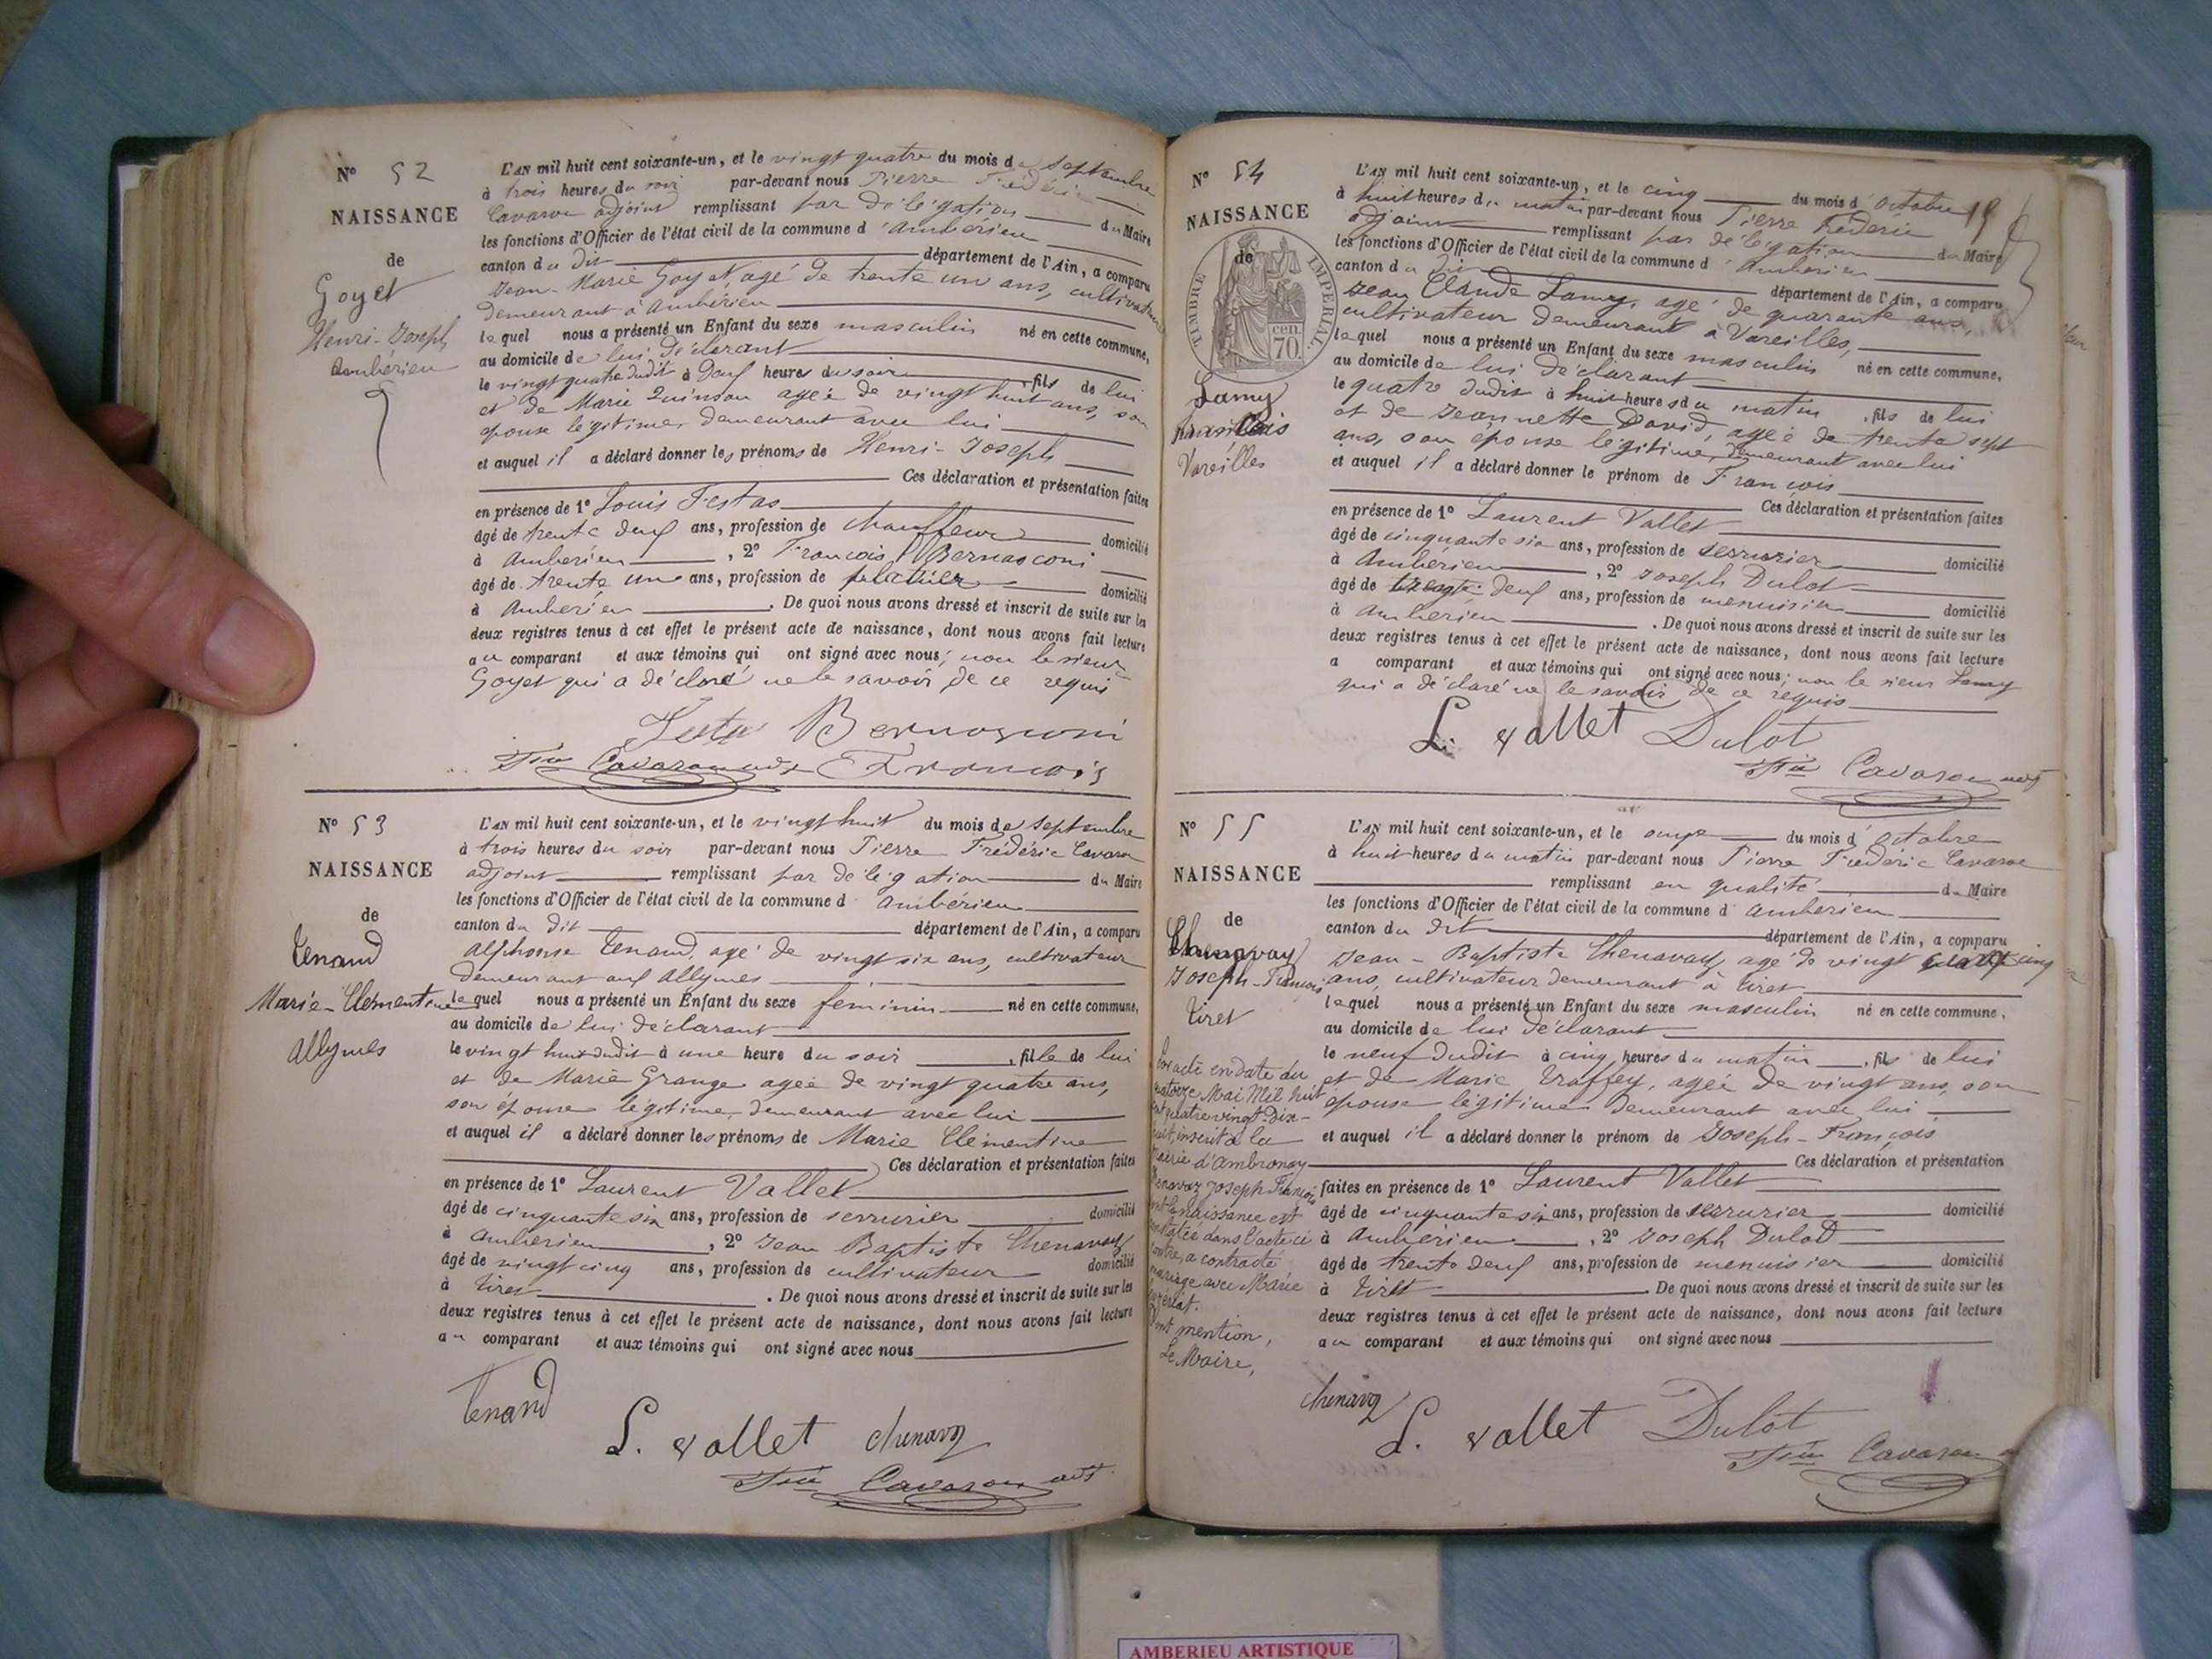 N° 52
NAISSANCE
de
Goyet
Henri-Joseph
Ambérieu
L'AN mil huit cent soixante-un, et le vingt quatre du mois de Septembre
à trois heures du soir par-devant nous Pierre Frédéric
Cavaron adjoint remplissant par délégation du Maire
les fonctions d'Officier de l'état civil de la commune d'Ambérieu
canton du dit département de l'Ain, a comparu
Jean-Marie Goyet, agé de trente un ans, cultivateur
demeurant à Ambérieu
lequel nous a présenté un Enfant du sexe masculin né en cette commune,
au domicile de lui déclarant
le vingt quatre dudit à deux heures du soir, fils de lui
et de Marie Quinson agée de vingt huit ans, son
épouse légitime, demeurant avec lui
et auquel il a déclaré donner les prénoms de Henri-Joseph
Ces déclaration et présentation faites
en présence de 1° Louis Festas
âgé de trente deux ans, profession de chauffeur domicilié
à Ambérieu, 2° François Bernasconi
âgé de trente un ans, profession de plâtrier domicilié
à Ambérieu. De quoi nous avons dressé et inscrit de suite sur les
deux registres tenus à cet effet le présent acte de naissance, dont nous avons fait lecture
au comparant et aux témoins qui ont signé avec nous; non le sieur
Goyet qui a déclaré ne le savoir de ce requis
Bernasconi
Cavaron adjt François
N° 53
NAISSANCE
de
Tenand
Marie-Clémentine
Allymes
L'AN mil huit cent soixante-un, et le vingt huit du mois de Septembre
à trois heures du soir par-devant nous Pierre Frédéric Cavaron
adjoint remplissant par délégation du Maire
les fonctions d'Officier de l'état civil de la commune d'Ambérieu
canton du dit département de l'Ain, a comparu
Alphonse Tenand, agé de vingt six ans, cultivateur
demeurant aux Allymes
lequel nous a présenté un Enfant du sexe féminin né en cette commune,
au domicile de lui déclarant
le vingt huit dudit à une heure du soir, fille de lui
et de Marie Grange agée de vingt quatre ans,
son épouse légitime, demeurant avec lui
et auquel il a déclaré donner les prénoms de Marie Clémentine
Ces déclaration et présentation faites
en présence de 1° Laurent Vallet
âgé de cinquante six ans, profession de serrurier domicilié
à Ambérieu, 2° Jean Baptiste Chenavay
âgé de vingt cinq ans, profession de cultivateur domicilié
à Tiret. De quoi nous avons dressé et inscrit de suite sur les
deux registres tenus à cet effet le présent acte de naissance, dont nous avons fait lecture
au comparant et aux témoins qui ont signé avec nous
Tenand
L. vallet chenavay
Cavaron adjt
N° 54
NAISSANCE
de
TIMBRE IMPERIAL
70 cen.
Lamy
François
Vareilles
L'AN mil huit cent soixante-un, et le cinq du mois d'Octobre 19
à huit heures du matin par-devant nous Pierre Frédéric
adjoint remplissant par délégation du Maire
les fonctions d'Officier de l'état civil de la commune d'Ambérieu
canton du dit département de l'Ain, a comparu
Jean Claude Lamy, agé de quarante ans,
cultivateur demeurant à Vareilles,
lequel nous a présenté un Enfant du sexe masculin né en cette commune,
au domicile de lui déclarant
le quatre dudit à huit heures du matin, fils de lui
et de Jeannette David, agée de trente sept
ans, son épouse légitime, demeurant avec lui
et auquel il a déclaré donner le prénom de François
Ces déclaration et présentation faites
en présence de 1° Laurent Vallet
âgé de cinquante six ans, profession de serrurier domicilié
à Ambérieu, 2° Joseph Dulot
âgé de trente deux ans, profession de menuisier domicilié
à Ambérieu. De quoi nous avons dressé et inscrit de suite sur les
deux registres tenus à cet effet le présent acte de naissance, dont nous avons fait lecture
a comparant et aux témoins qui ont signé avec nous; non le sieur Lamy
qui a déclaré ne le savoir de ce requis
L. vallet Dulot
Cavaron adjt
N° 55
NAISSANCE
de
Chenavay
Joseph-François
Tiret
Par acte en date du
quatorze Mai Mil huit
cent quatre vingt dix-
huit, inscrit à la
Mairie d'Ambronay
Chenavay Joseph François
dont la naissance est
constatée dans l'acte ci
contre, a contracté
mariage avec Marie
Dont mention,
Le Maire,
L'AN mil huit cent soixante-un, et le onze du mois d'Octobre
à huit heures du matin par-devant nous Pierre Frédéric Cavaron
remplissant en qualité de Maire
les fonctions d'Officier de l'état civil de la commune d'Ambérieu
canton du dit département de l'Ain, a comparu
Jean-Baptiste Chenavay, agé de vingt quatre cinq
ans, cultivateur demeurant à Tiret
lequel nous a présenté un Enfant du sexe masculin né en cette commune,
au domicile de lui déclarant
le neuf dudit à cinq heures du matin, fils de lui
et de Marie Traffey, agée de vingt ans, son
épouse légitime demeurant avec lui
et auquel il a déclaré donner le prénom de Joseph-François
Ces déclaration et présentation
faites en présence de 1° Laurent Vallet
âgé de cinquante six ans, profession de serrurier domicilié
à Ambérieu, 2° Joseph Dulot
âgé de trente deux ans, profession de menuisier domicilié
à Tiret. De quoi nous avons dressé et inscrit de suite sur les
deux registres tenus à cet effet le présent acte de naissance, dont nous avons fait lecture
au comparant et aux témoins qui ont signé avec nous
chenavay
L. vallet Dulot
Cavaron
AMBERIEU ARTISTIQUE